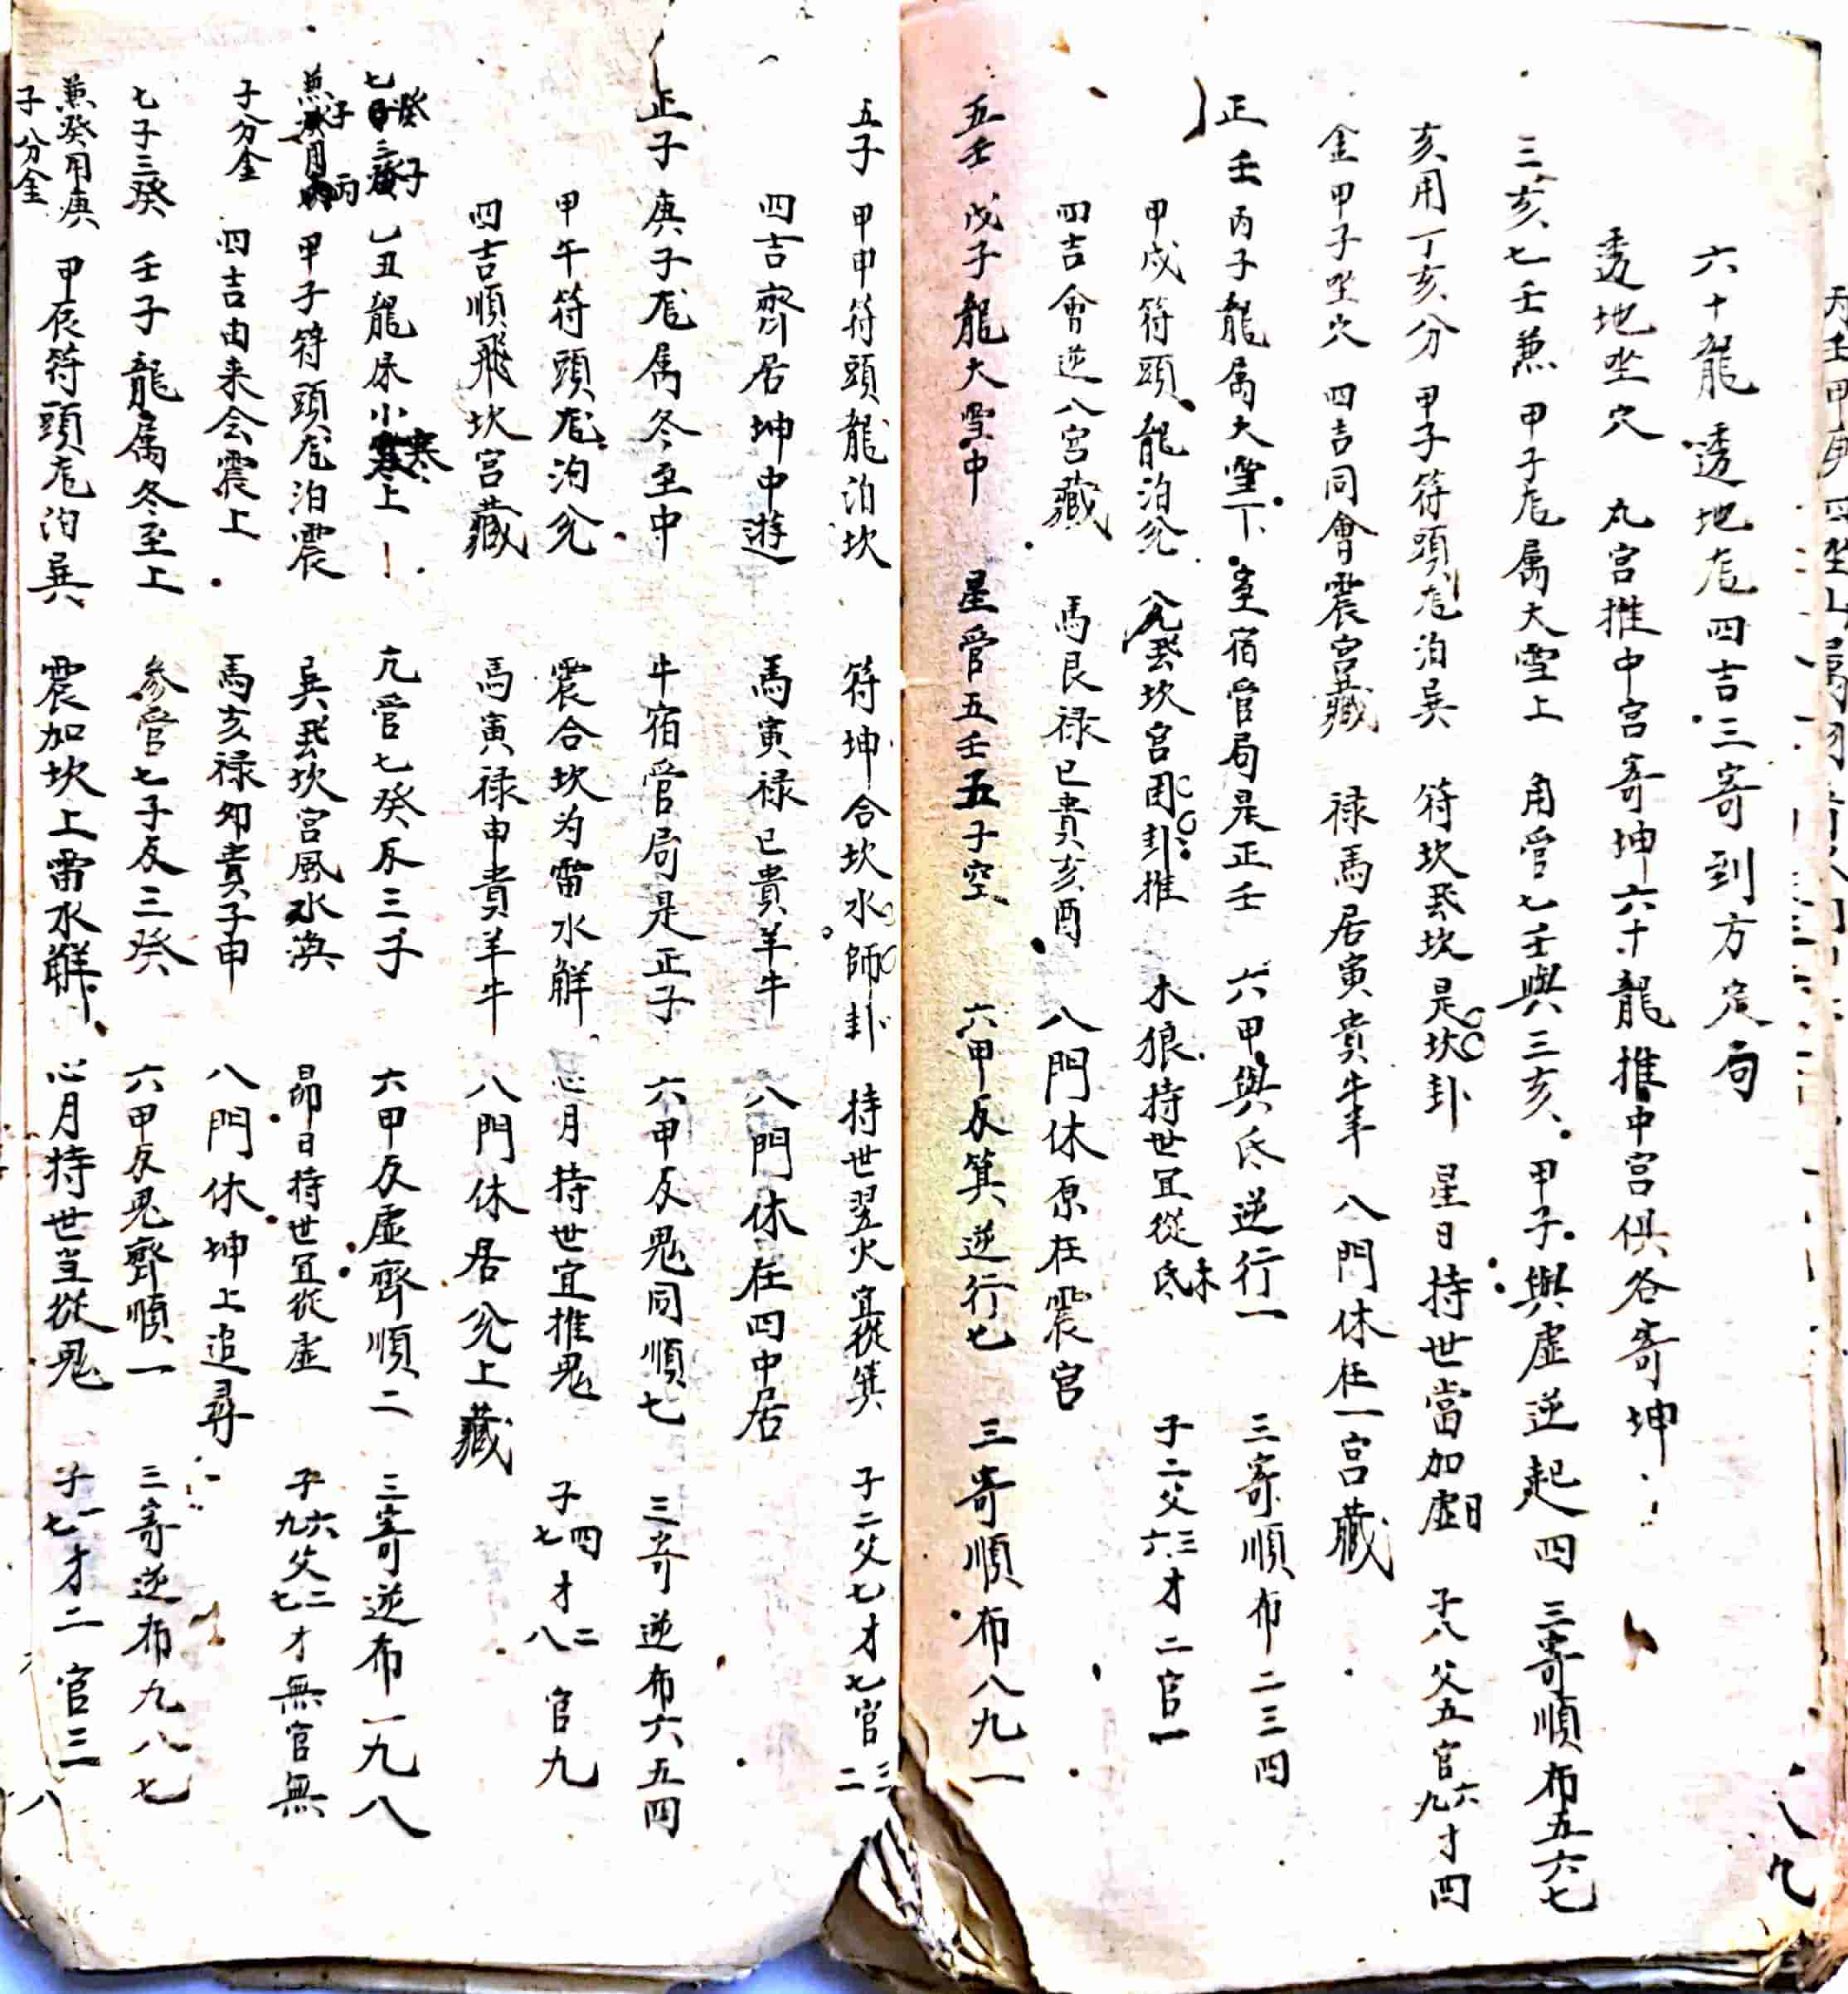 六十龍透地尨四吉三寄到方定局
透地坐穴 九宮推中宮寄坤六十龍推中宮俱各寄坤
三亥七壬兼 甲子尨属大雪上 角管七壬與三亥 甲子與虛逆起四 三寄順布五六七
亥用丁亥分 甲子符頭尨泊巽 符坎丞坎是坎卦 星日持世當加虛日 子八父五官六九才四
金甲子坐穴 四吉同會震宮藏 祿馬居寅貴牛羊 八門休在一宮藏
正壬 丙子龍属大雪下 室宿管局是正壬 六甲與氐逆行一 三寄順布二三四
甲戌符頭龍泊兌 丞坎宮困卦推 木狼持世宜從氐 子二父三六才二官一
四吉會逆八宮藏 馬艮祿巳貴亥酉 八門休原在震宮
五壬 戊子龍大雪中 星管五壬五子空 六甲反箕逆行七 三寄順布八九一
五子 甲申符頭龍泊坎 符坤合坎水師卦 持世翌火宜從箕 子二父七才七官三二
四吉齊居坤中遊 馬寅祿巳貴羊牛 八門休在四中居
正子 庚子尨属冬至中 牛宿管局是正子 六甲反鬼同順七 三寄逆布六五四
甲午符頭尨泊兌 震合坎为雷水解 心月持世宜推鬼 子四七才二八官九
四吉順飛坎宮藏 馬寅祿申貴羊牛 八門休居兌上藏
七癸三子 乙丑龍尿小寒上 亢管七癸反三子 六甲反虛齊順二 三寄逆布一九八
兼子用丙 甲子符頭尨泊震 巽丞坎宮風水渙 昴日持世宜從虛 子六九父二七才無官無
子分金 四吉由来会震上 馬亥祿卯貴子申 八門休坤上追尋
七子三癸 壬子龍属冬至上 參管七子反三癸 六甲反鬼齊順一 三寄逆布九八七
兼癸用庚 甲辰符頭尨泊巽 震加坎上雷水解 心月持世当從鬼 子一七才二官三八
子分金